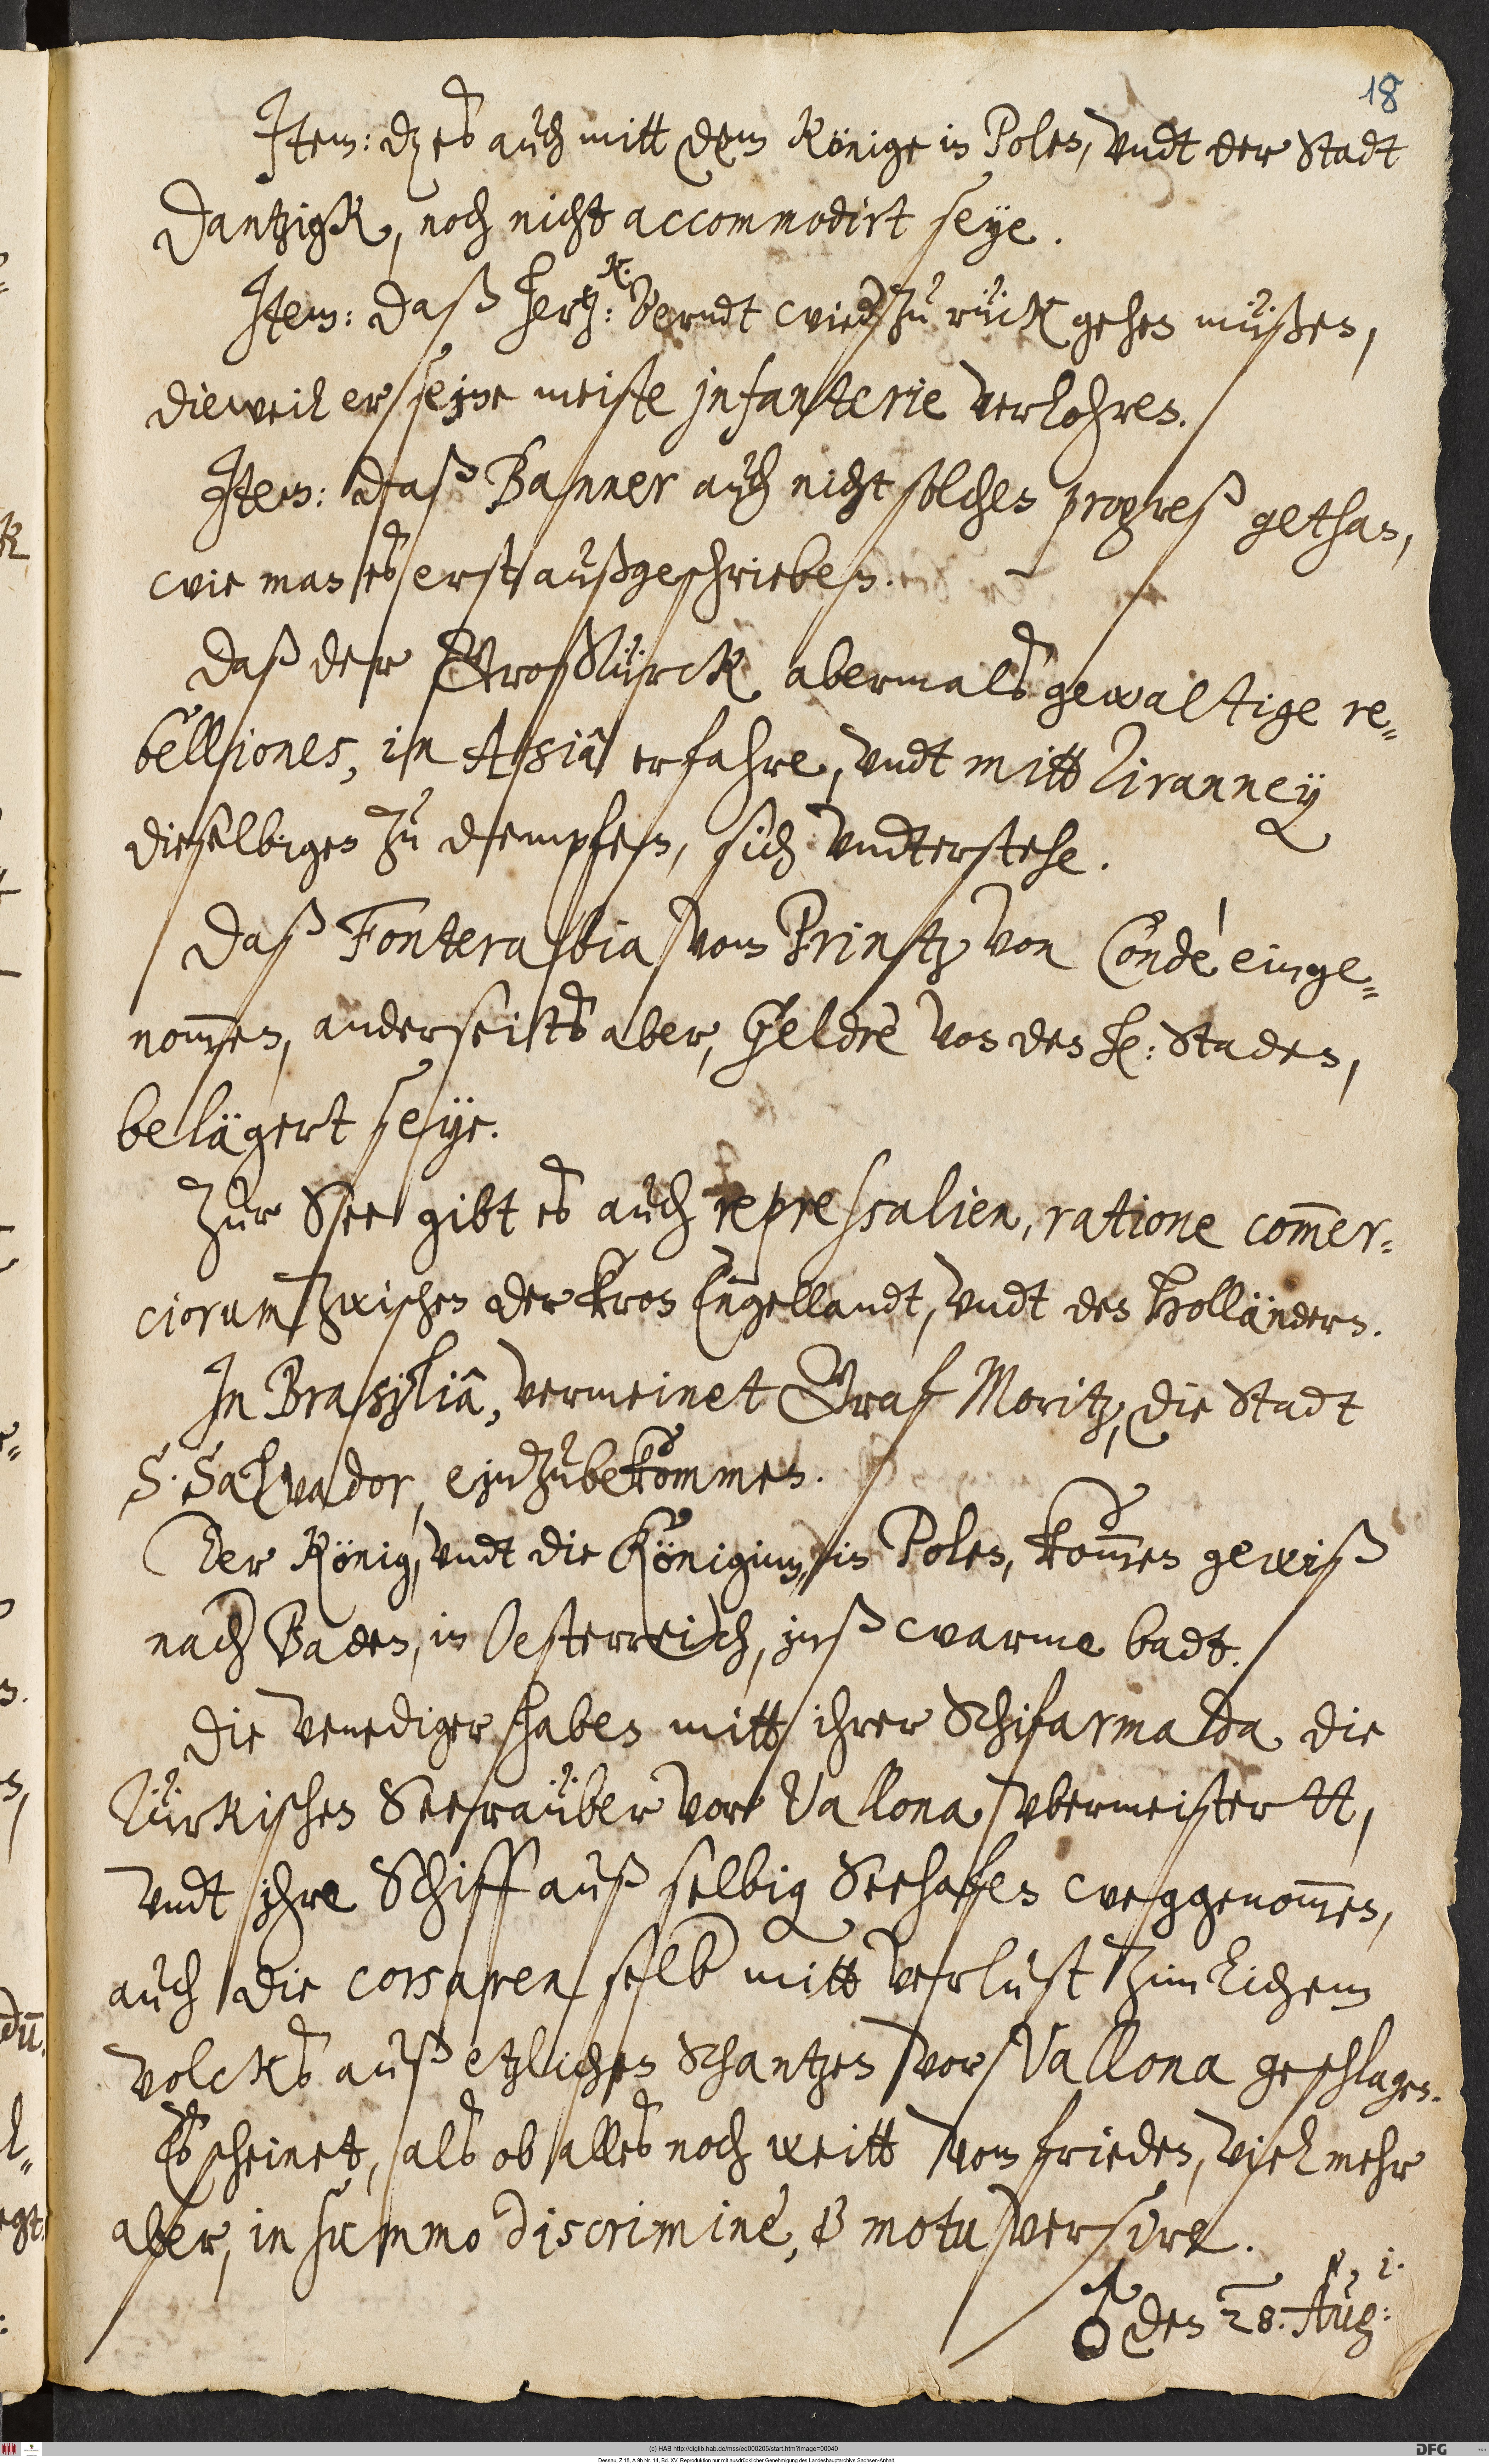 18
Item: dz es auch mitt dem Könige in Polen, vndt der Stadt
Dantzigk, noch nicht accommodirt seye.
Item: daß hertz: Berndt wied zu rück gehen müßen,
dieweil er seine meiste infanterie verlohren.
Item: daß Banner auch nicht solchen progreß gethan,
wie man es erst außgeschrieben.
Daß der GroßTürck abermals gewaltige re=
belliones, in Asiâ erfahre, vndt mitt Tiranney
dieselbigen zu dempfen, sich vndterstehe.
Daß Fonterabia vom Printz von Condè einge=
nom̅en, anderseits aber, Geldrè von den h: Staden,
belägert seye.
Zur See gibt es auch repressalien, ratione com̅er=
ciorum zwischen der kron Engellandt, vndt den Holländern.
In Brasiliâ, vermeinet Graf Moritz, die Stadt
S. Salvador, einzubekommen.
Der König, vndt die Königinn, in Polen, kom̅en gewiß
nach Baden, in Oesterreich, inß warme badt.
Die Venediger haben mitt ihrer Schifarmada die
Türkischen Seeraüber vor Vallona vbermeistertt,
vndt ihre Schiff auß selbig Seehafen weggenom̅en,
auch die corsaren selb mitt verlust zimlichem
volcks auß etzlichen Schantzen vor Vallona geschlagen.
Es scheinet, als ob alles noch weitt vom frieden, viel mehr
aber, in summo discriminè, & motu versire.
♂ den 28. Aug: